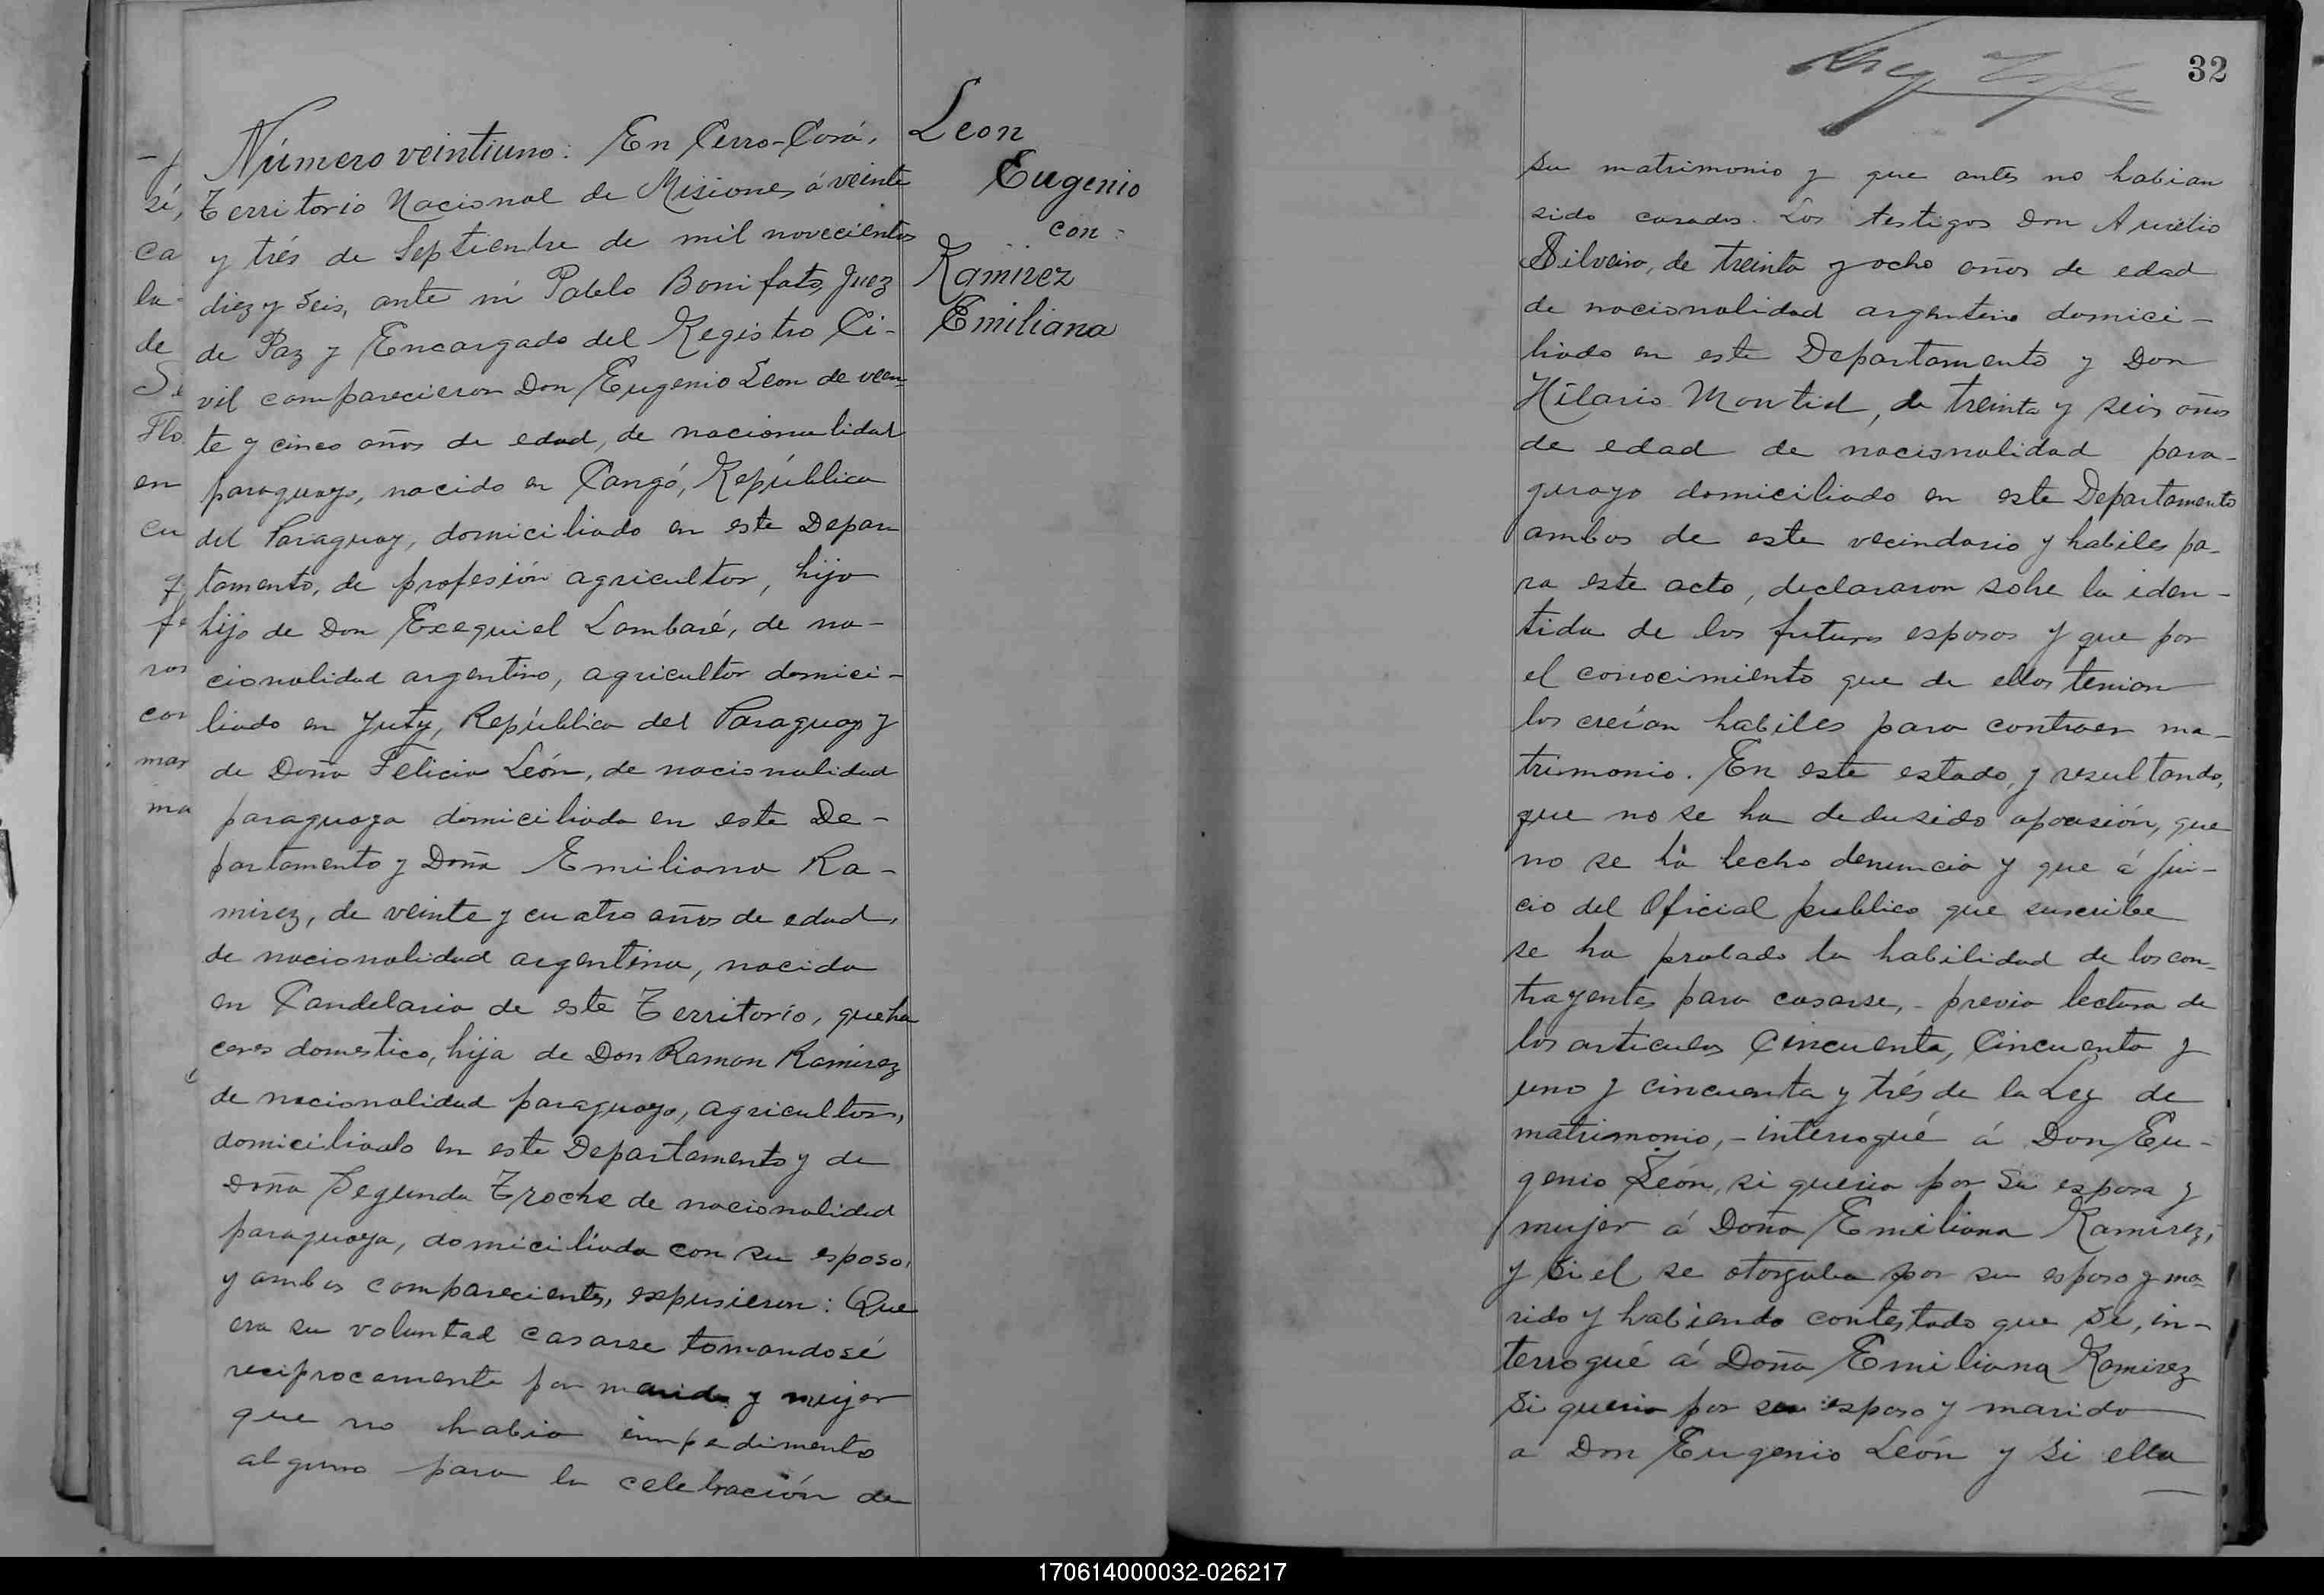 Número veintiuno: En Cerro-Corá,
Territorio Nacional de Misiones, á veinte
y trés de Septiembre de mil novecientos
diez y seis, ante mí Pablo Bonifato, Juez
de Paz y Encargado del Registro Ci-
vil comparecieron Don Eugenio Leon de vein
te y cinco años de edad, de nacionalidad
paraguayo, nacido en Cangó, República
del Paraguay, domiciliado en este Depar
tamento, de profesión agricultor, hijo
hijo de Don Exequiel Lambaré, de na-
cionalidad argentino, agricultor domici-
liado en Yuty, República del Paraguay y
de Doña Felicia León, de nacionalidad
paraguaya domiciliada en este De-
partamento y Doña Emiliana Ra-
mirez, de veinte y cuatro años de edad,
de nacionalidad argentina, nacida
en Candelaria de este Territorio, queha
ceres domestico, hija de Don Ramon Ramirez
de nacionalidad paraguayo, agricultor,
domiciliado en este Departamento y de
Doña Segunda Troche de nacionalidad
paraguaya, domiciliada con su esposo,
y ambos comparecientes, expusieron: Que
era su voluntad casarse tomandosé
reciprocamente por marido y mujer
que no habia impedimento
alguno para la celebración de
Leon
Eugenio
con
Ramirez
Emiliana
sí,
ca
la
de
Flo
en
cu
q
fe
ros
con
mar
ma
32
su matrimonio y que antes no habian
sido casados. Los testigos Don Aurelio
Silveira, de treinta y ocho años de edad
de nacionalidad argentino domici-
liado en este Departamento y Don
Hilario Montiel, de treinta y seis años
de edad de nacionalidad para-
guayo domiciliado en este Departamento
ambos de este vecindario y habiles pa-
ra este acto, declararon sobre la iden-
tida de los futuros esposos y que por
el conocimiento que de ellos tenian
los creían habiles para contraer ma-
trimonio. En este estado, y resultando,
que no se ha dedusido oposición, que
no se há hecho denuncia y que á jui-
cio del Oficial publico que suscribe
se ha probado la habilidad de los con-
trayentes para casarse, - previa lectura de
los articulos Cincuenta, Cincuenta y
uno y cincuenta y trés de la Ley de
matrimonio, - interrogué á Don Eu-
genio León, si queria por su esposa y
mujer á Doña Emiliana Ramirez,
y si el se otorgaba por su esposo y ma-
rido y habiendo contestado que Si, in-
terrogué á Doña Emiliana Ramirez
si queria por su esposo y marido
a Don Eugenio León y si ella
170614000032-026217